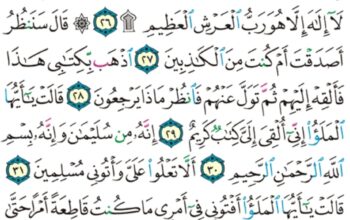 لَآ إِلَٰهَ إِلَّا هُوَ رَبُّ ٱلْعَرْشِ ٱلْعَظِيمِ ٢٦ ۩ قَالَ سَنَنظُرُ
أَصَدَقْتَ أَمْ كُنتَ مِنَ ٱلْكَٰذِبِينَ ٢٧ ٱذْهَب بِّكِتَٰبِى هَٰذَا
فَأَلْقِهْ إِلَيْهِمْ ثُمَّ تَوَلَّ عَنْهُمْ فَٱنظُرْ مَاذَا يَرْجِعُونَ ٢٨ قَالَتْ يَٰٓأَيُّهَا
ٱلْمَلَؤُا۟ إِنِّىٓ أُلْقِىَ إِلَىَّ كِتَٰبٌ كَرِيمٌ ٢٩ إِنَّهُۥ مِن سُلَيْمَٰنَ وَإِنَّهُۥ بِسْمِ
ٱللَّهِ ٱلرَّحْمَٰنِ ٱلرَّحِيمِ ٣٠ أَلَّا تَعْلُوا۟ عَلَىَّ وَأْتُونِى مُسْلِمِينَ ٣١
قَالَتْ يَٰٓأَيُّهَا ٱلْمَلَؤُا۟ أَفْتُونِى فِىٓ أَمْرِى مَا كُنتُ قَاطِعَةً أَمْرًا حَتَّىٰ